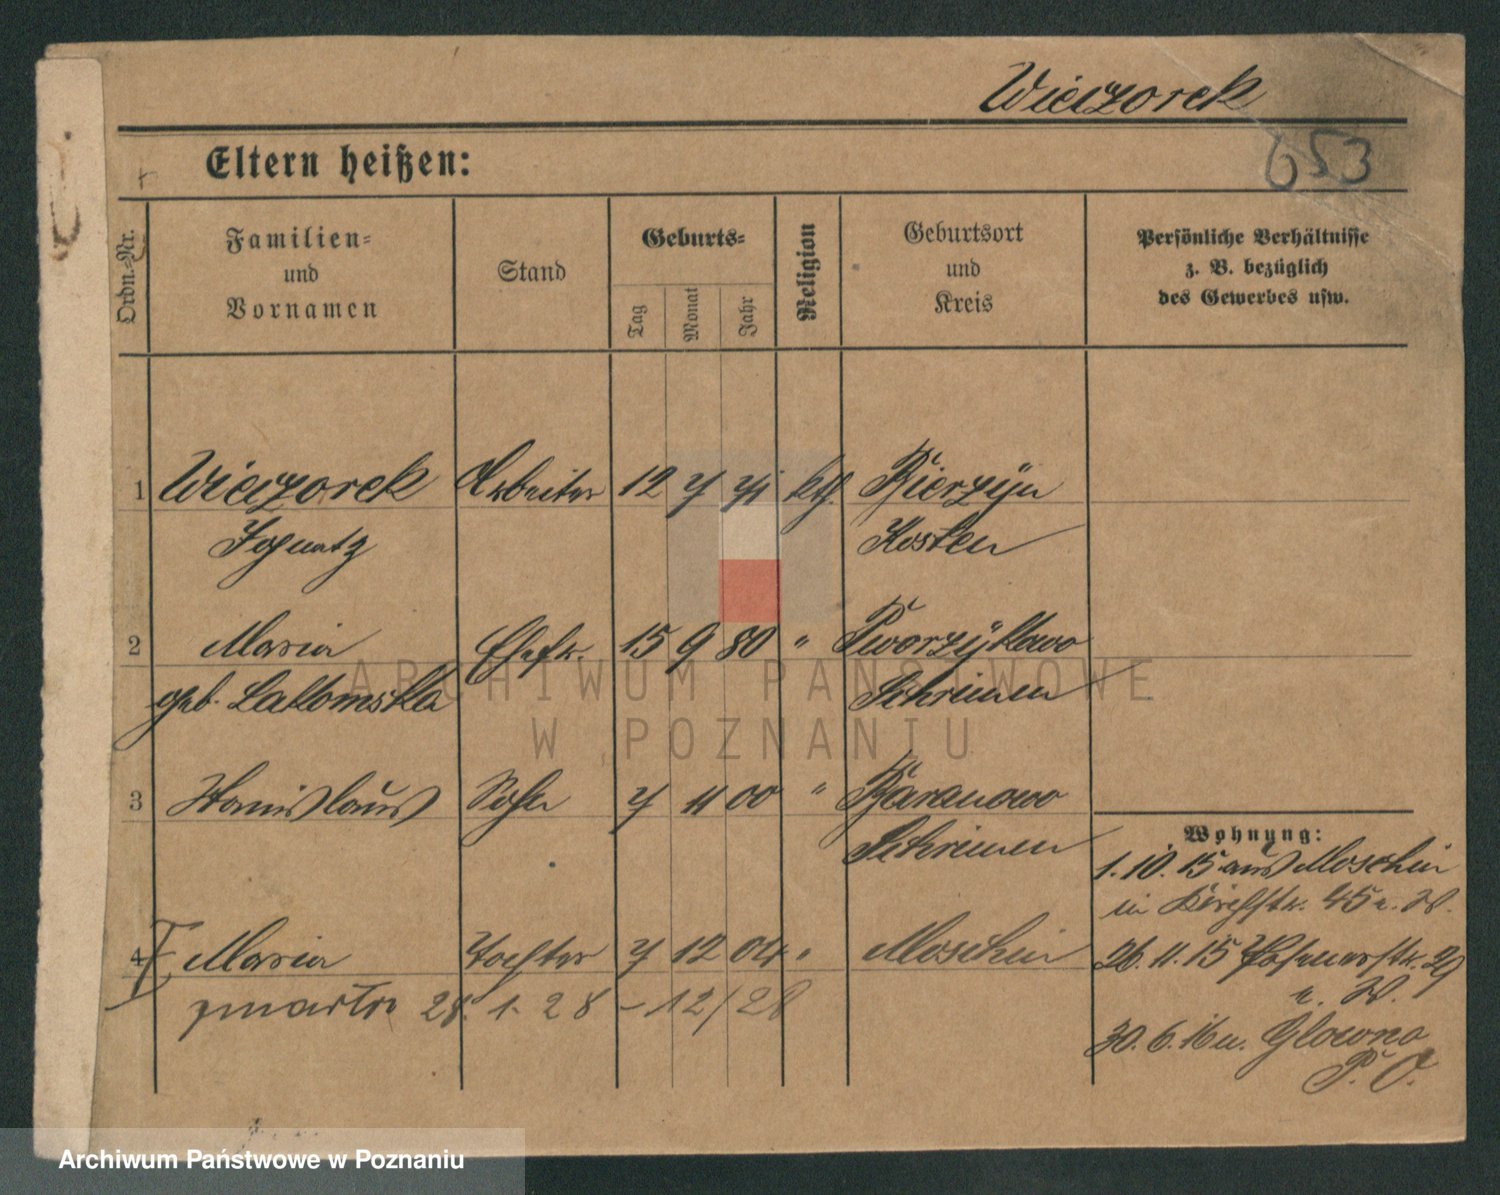 Wieczorek
653
Eltern heißen:
Ordn.=Nr.
Familien=
und
Vornamen
Stand
Geburts=
Tag
Monat
Jahr
Religion
Geburtsort
und
Kreis
Persönliche Verhältnisse
z. B. bezüglich
des Gewerbes usw.
1 Wieczorek Arbeiter 12 7 71 kth.
Ignatz Kosten
2 Maria Ehefr. 15 9 80 "
geb. Lakomska Schrimm
3 Stanislaus Sohn 7 11 00 " Baranowo
Schrimm
Wohnung:
1.10.15 aus Moschin
in 45 u. W.
4 Maria Tochter 7 12 04 " Moschin
26.11.15 Posenerstr. 29
u. W.
zmarła 28. 1. 28 – 12/28
30.6.16 u. Glowno
P. O.
ARCHIWUM PAŃSTWOWE
W POZNANIU
Archiwum Państwowe w Poznaniu